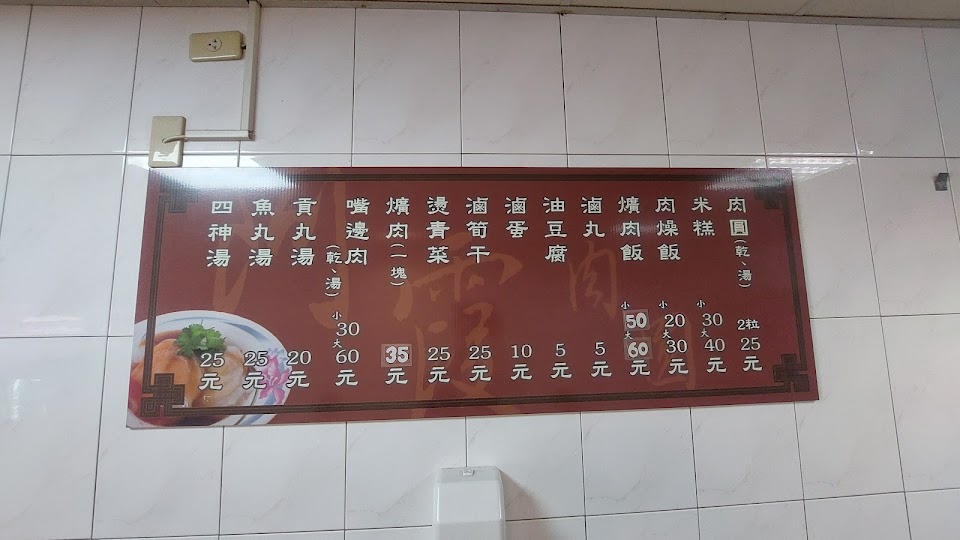 肉圓(乾、湯) 2粒 25元
米糕 小30 大40元
肉燥飯 小20 大30元
爌肉飯 小50 大60元
滷丸 5元
油豆腐 5元
滷蛋 10元
滷筍干 25元
燙青菜 25元
爌肉(一塊) 35元
嘴邊肉(乾、湯) 小30 大60元
貢丸湯 20元
魚丸湯 25元
四神湯 25元
肉圓